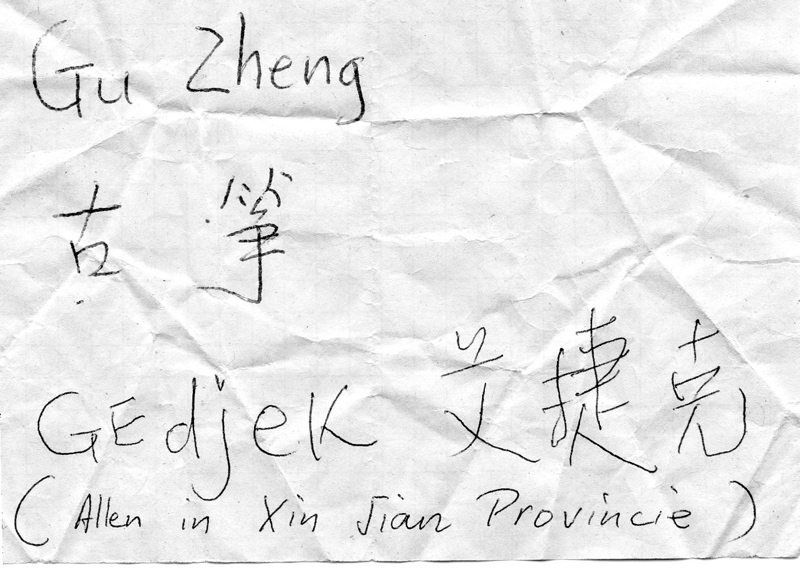 Gu Zheng
古 箏
GEdjeK 艾捷克
(Allen in Xin Jian Provincie)